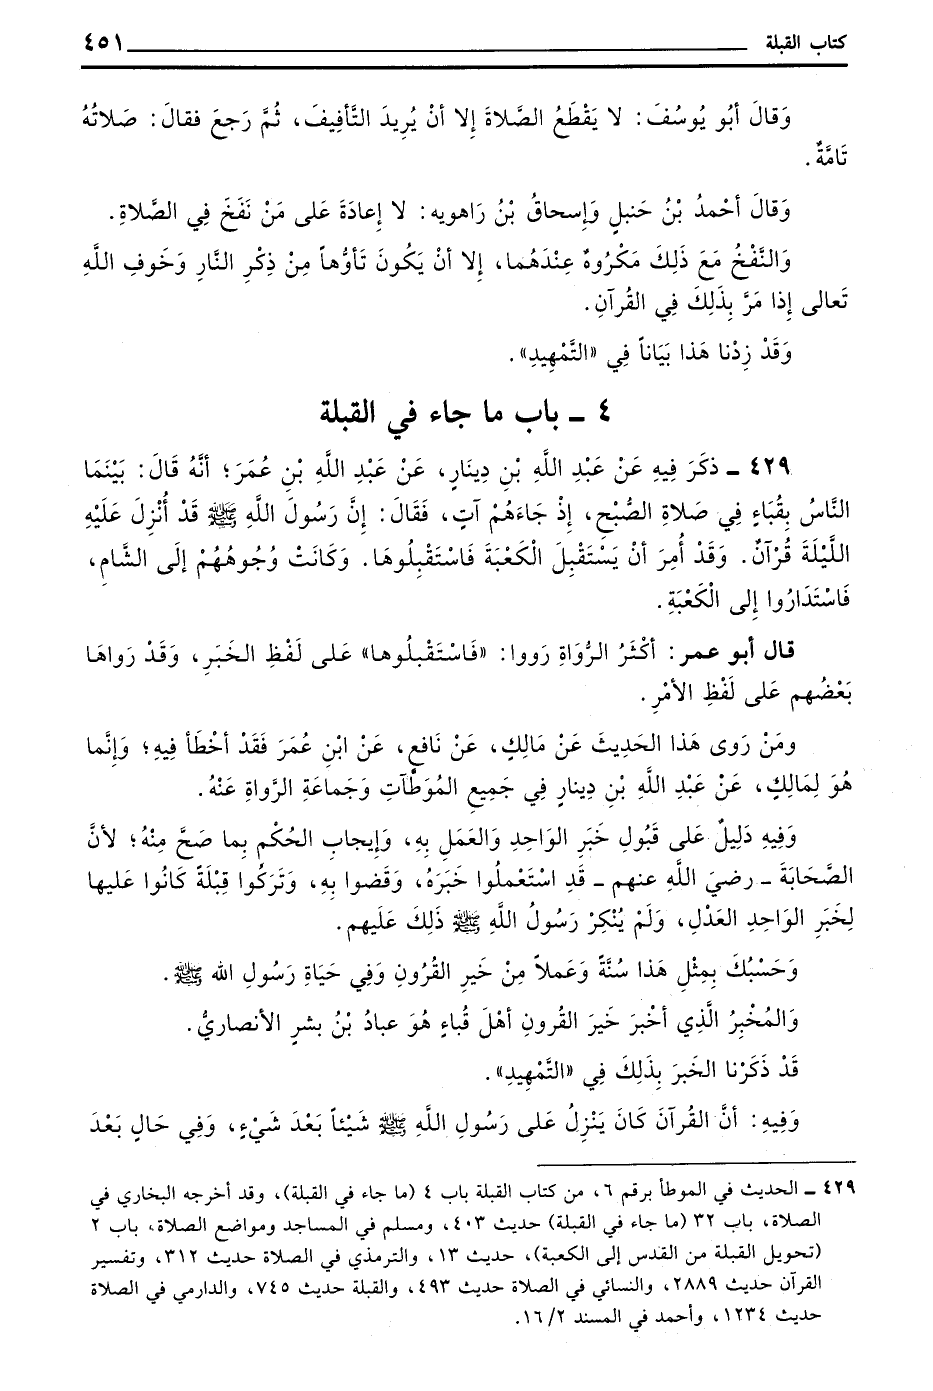 كتاب القبلة ٤٥١
وَقالَ أبُو يُوسُفَ: لا يَقْطَعُ الصَّلاةَ إلا أنْ يُرِيدَ التَّأفِيفَ، ثُمَّ رَجعَ فقالَ: صَلاتُهُ
تَامَّةٌ.
وَقالَ أحْمدُ بْنُ حَنبلٍ وَإسحاقُ بْنُ رَاهويه: لا إعادَةَ عَلى مَنْ نَفَخَ فِي الصَّلاةِ.
وَالنَّفْخُ مَعَ ذَلِكَ مَكْرُوهٌ عِنْدَهُما، إلا أنْ يَكُونَ تَأوُّهاً مِنْ ذِكْرِ النَّارِ وَخَوفِ اللَّهِ
تَعالى إذا مَرَّ بِذَلِكَ فِي القُرآنِ.
وَقَدْ زِدْنا هَذا بَيَاناً فِي «التَّمْهِيدِ».
٤ ـ باب ما جاء في القبلة
٤٢٩ ـ ذكَرَ فِيهِ عَنْ عَبْدِ اللَّهِ بْنِ دِينَارٍ، عَنْ عَبْدِ اللَّهِ بْنِ عُمَرَ؛ أنَّهُ قَالَ: بَيْنَمَا
النَّاسُ بِقُبَاءٍ فِي صَلاةِ الصُّبْحِ، إذْ جَاءَهُمْ آتٍ، فَقَالَ: إنَّ رَسُولَ اللَّهِ ﷺ قَدْ أُنْزِلَ عَلَيْهِ
اللَّيْلَةَ قُرْآنٌ. وَقَدْ أُمِرَ أنْ يَسْتَقْبِلَ الْكَعْبَةَ فَاسْتَقْبِلُوهَا. وَكَانَتْ وُجُوهُهُمْ إلَى الشَّامِ،
فَاسْتَدَارُوا إلى الْكَعْبَةِ.
قال أبو عمر: أكْثَرُ الرُّوَاةِ رَووا: «فَاسْتَقْبلُوها» عَلى لَفْظِ الخَبَرِ، وَقَدْ رَواهَا
بَعْضُهم عَلى لَفْظِ الأمْرِ.
ومَنْ رَوى هَذا الحَدِيثَ عَنْ مَالِكٍ، عَنْ نَافعٍ، عَنْ ابْنِ عُمَرَ فَقَدْ أخْطَأ فِيهِ؛ وَإنَّما
هُوَ لِمَالِكٍ، عَنْ عَبْدِ اللَّهِ بْنِ دِينارٍ فِي جَمِيعِ المُوَطَّآتِ وَجَماعَةِ الرَّواةِ عَنْهُ.
وَفِيهِ دَلِيلٌ عَلى قَبُولِ خَبَرِ الوَاحِدِ وَالعَمَلِ بِهِ، وَإيجابِ الحُكْمِ بِما صَحَّ مِنْهُ؛ لأنَّ
الصَّحَابَةَ ـ رضيَ اللَّهُ عنهم ـ قَدِ اسْتَعْملُوا خَبَرَهُ، وَقَضوا بِهِ، وَتَرَكُوا قِبْلَةً كَانُوا عَليها
لِخَبَرِ الوَاحِدِ العَدْلِ، وَلَمْ يُنْكِرْ رَسُولُ اللَّهِ ﷺ ذَلِكَ عَلَيهم.
وَحَسْبُكَ بِمِثْلِ هَذا سُنَّةً وَعَملاً مِنْ خَيرِ القُرُونِ وَفِي حَيَاةِ رَسُولِ الله ﷺ.
وَالمُخْبِرُ الَّذِي أخْبَرَ خَيرَ القُرونِ أهْلَ قُباءٍ هُوَ عبادُ بْنُ بشرٍ الأنصاريُّ.
قَدْ ذَكَرْنا الخَبرَ بِذَلِكَ فِي «التَّمْهِيدِ».
وَفِيهِ: أنَّ القُرآنَ كَانَ يَنْزِلُ عَلى رَسُولِ اللَّهِ ﷺ شَيْئاً بَعْدَ شَيْءٍ، وَفِي حَالٍ بَعْدَ
٤٢٩ ـ الحديث في الموطأ برقم ٦، من كتاب القبلة باب ٤ (ما جاء في القبلة)، وقد أخرجه البخاري في
الصلاة، باب ٣٢ (ما جاء في القبلة) حديث ٤٠٣، ومسلم في المساجد ومواضع الصلاة، باب ٢
(تحويل القبلة من القدس إلى الكعبة)، حديث ١٣، والترمذي في الصلاة حديث ٣١٢، وتفسير
القرآن حديث ٢٨٨٩، والنسائي في الصلاة حديث ٤٩٣، والقبلة حديث ٧٤٥، والدارمي في الصلاة
حديث ١٢٣٤، وأحمد في المسند ١٦/٢.